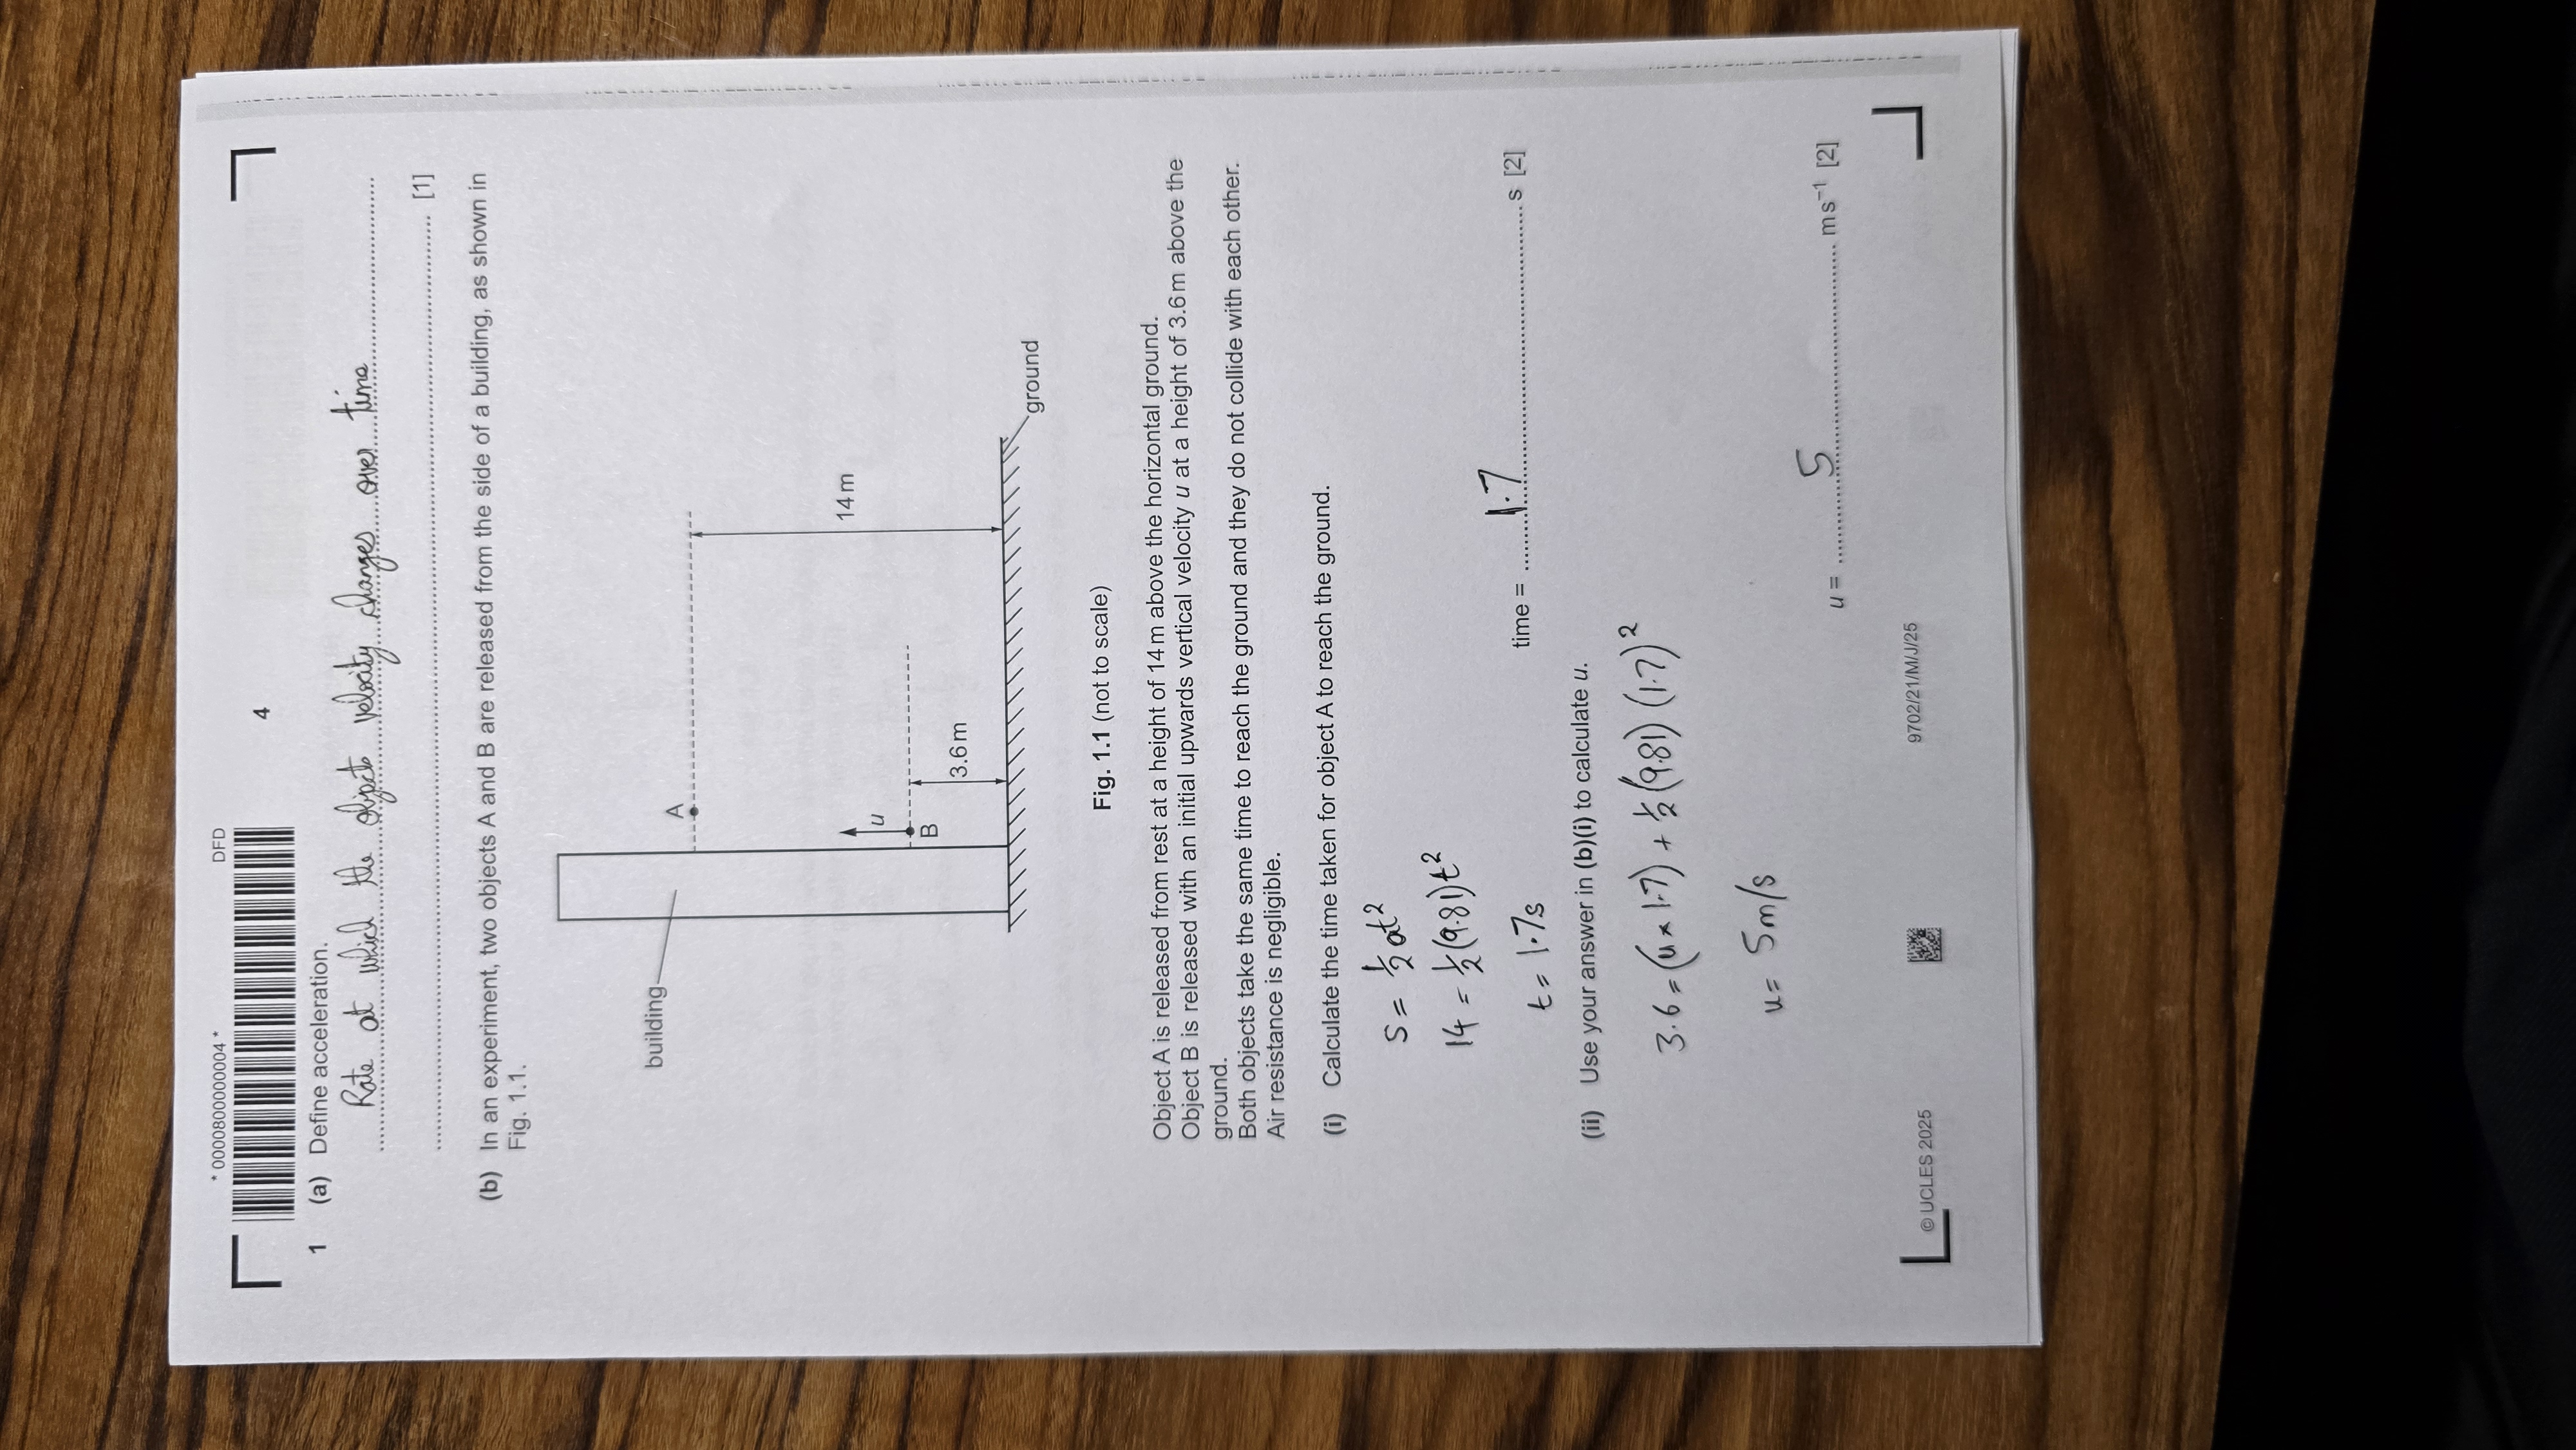 * 0000800000004 *
DFD
4
1 (a) Define acceleration.
Rate at which the objects velocity changes over time
[1]
(b) In an experiment, two objects A and B are released from the side of a building, as shown in
Fig. 1.1.
building
A
14 m
u
B
3.6 m
ground
Fig. 1.1 (not to scale)
Object A is released from rest at a height of 14 m above the horizontal ground.
Object B is released with an initial upwards vertical velocity u at a height of 3.6 m above the
ground.
Both objects take the same time to reach the ground and they do not collide with each other.
Air resistance is negligible.
(i) Calculate the time taken for object A to reach the ground.
s = ½at²
14 = ½(9.81)t²
t = 1.7s
time = 1.7 s [2]
(ii) Use your answer in (b)(i) to calculate u.
3.6 = (u × 1.7) + ½(9.81)(1.7)²
u = 5m/s
u = 5 m s⁻¹ [2]
© UCLES 2025
9702/21/M/J/25